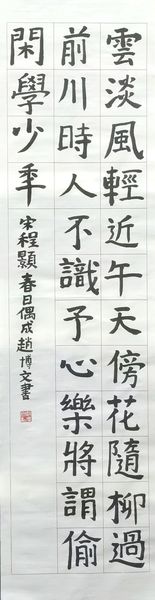 雲淡風輕近午天傍花隨柳過
前川時人不識予心樂將謂偷
閑學少年
宋程顥春日偶成趙博文書